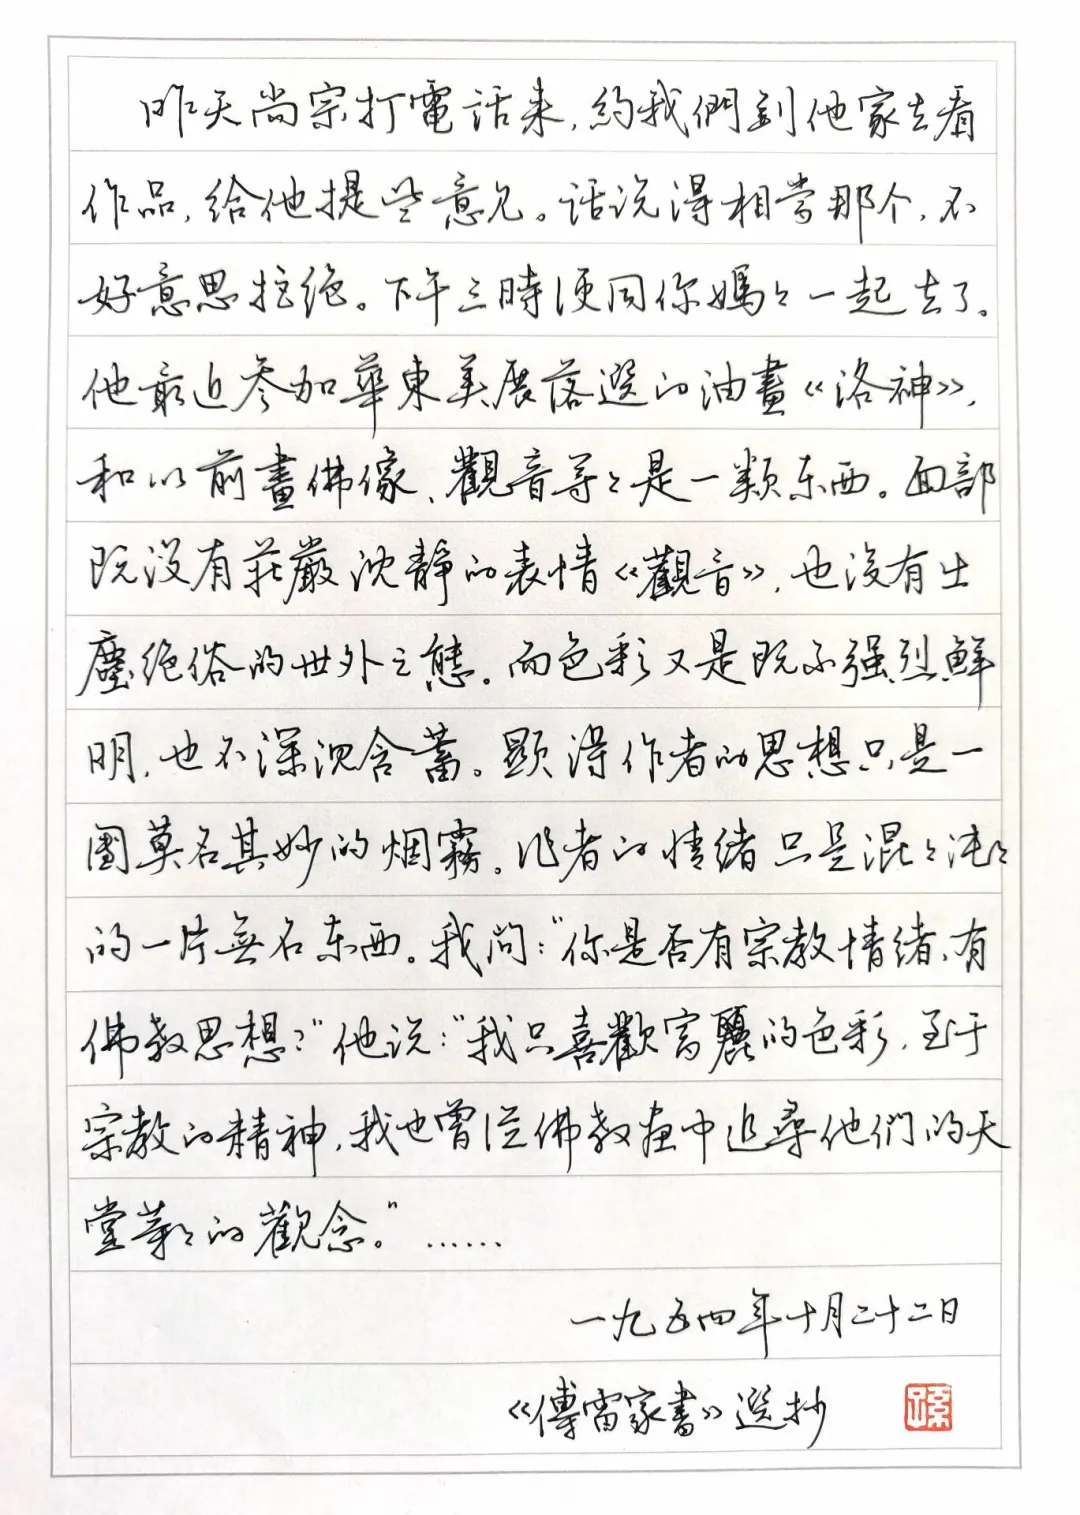 昨天尚宗打電話来,約我們到他家去看
作品,给他提些意见。话说得相當那个,不
好意思拒绝。下午三時便同你媽々一起去了。
他最近参加華東美展落選的油畫《洛神》,
和以前畫佛像、觀音等々是一類东西。面部
既没有莊嚴沈靜的表情《觀音》,也没有出
塵绝俗的世外之態。而色彩又是既不强烈鲜
明,也不深沉含蓄。顯得作者的思想只是一
團莫名其妙的烟霧。作者的情绪只是混々沌々
的一片無名东西。我问:“你是否有宗教情绪、有
佛教思想?”他说:“我只喜歡富麗的色彩,至于
宗教的精神,我也曾從佛教画中追尋他們的天
堂等々的觀念。”……
一九五四年十月二十二日
《傅雷家書》選抄